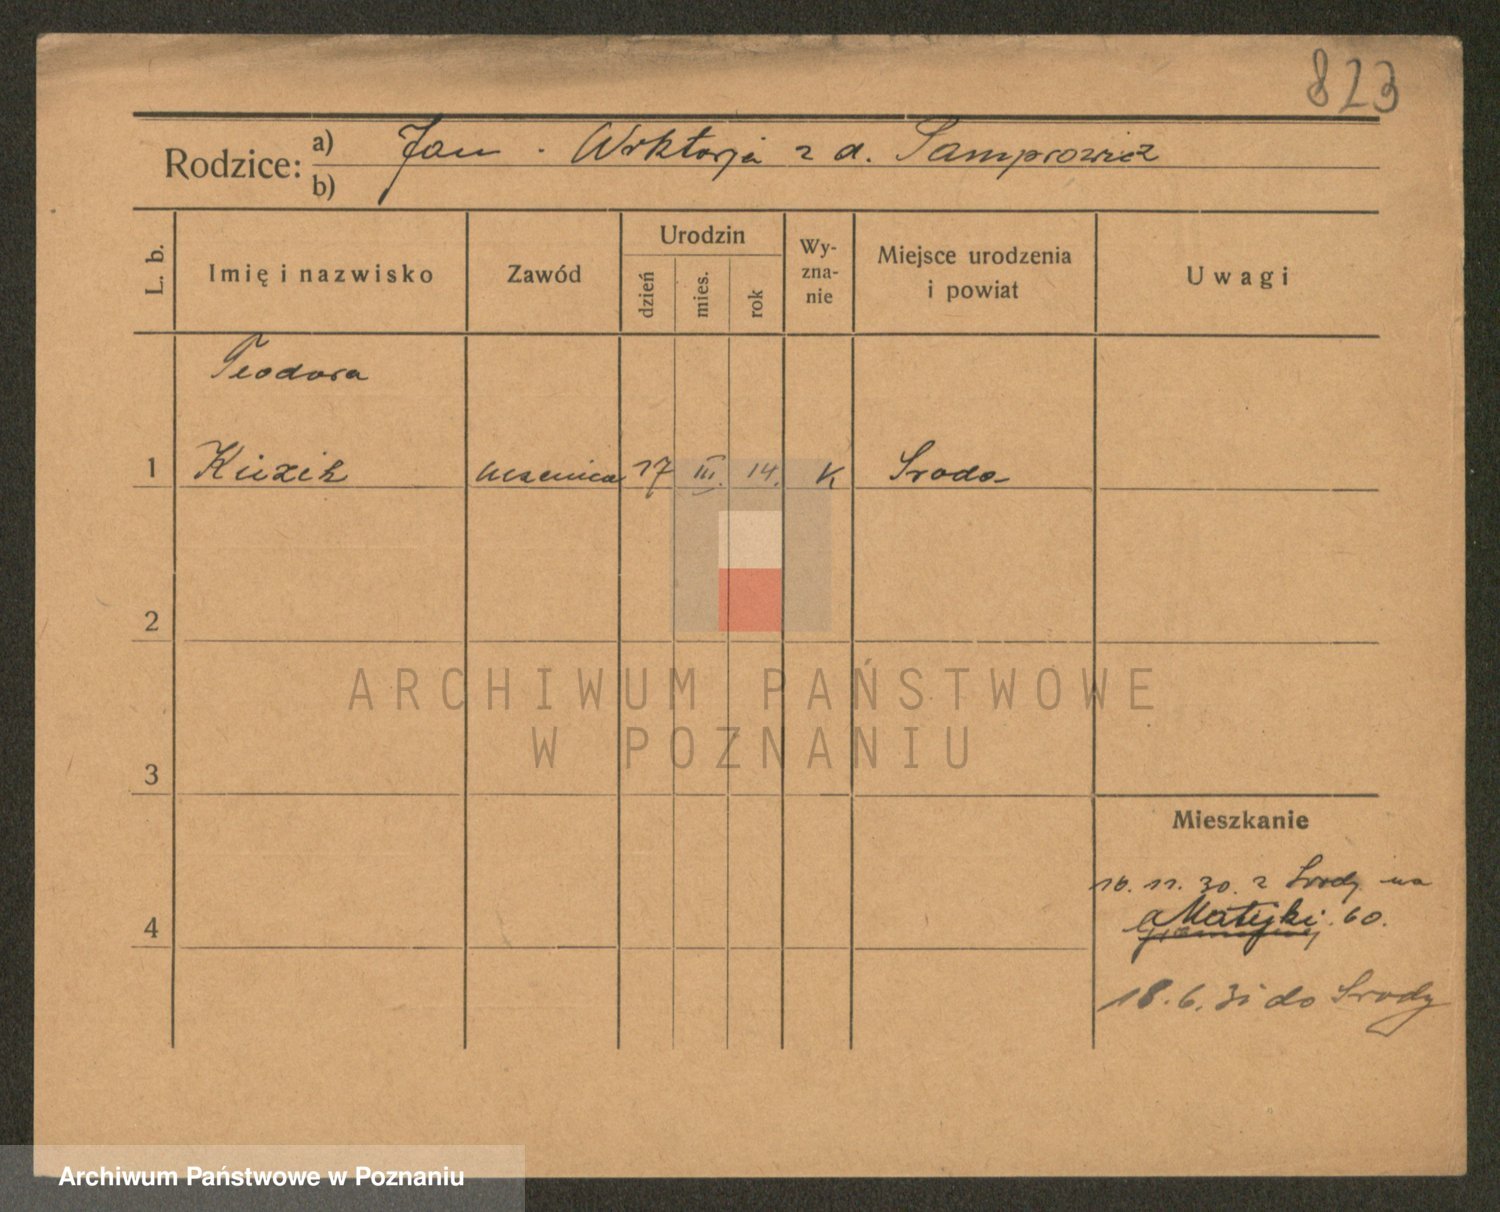 823
Rodzice: a) Jan . Wiktorja z d. Samprowicz
b)
L. b.
Imię i nazwisko
Zawód
Urodzin
dzień
mies.
rok
Wy-
zna-
nie
Miejsce urodzenia
i powiat
Uwagi
Teodora
1 uczenica 17 III. 14. K Sroda
2
ARCHIWUM PAŃSTWOWE
W POZNANIU
3
Mieszkanie
16. 11. 30. z Srody na
Matejki. 60.
4
18. 6. 31 do Srody
Archiwum Państwowe w Poznaniu